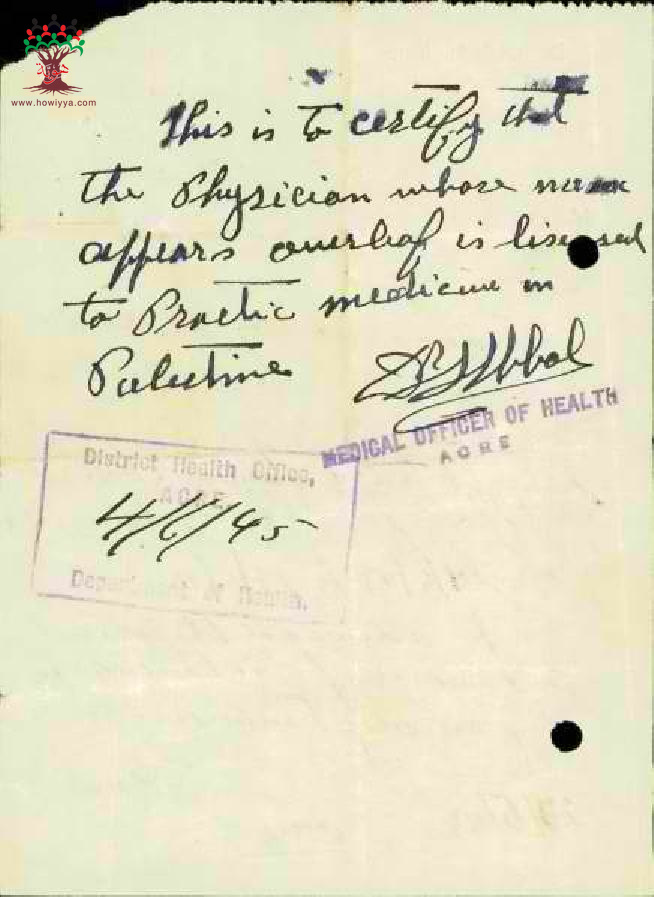 www.howiyya.com
This is to certify that
the Physician whose name
appears overleaf is lisensed
to Practic medicine in
Palestine
MEDICAL OFFICER OF HEALTH
ACRE
District Health Office,
ACRE
4/6/45
Department of Health.